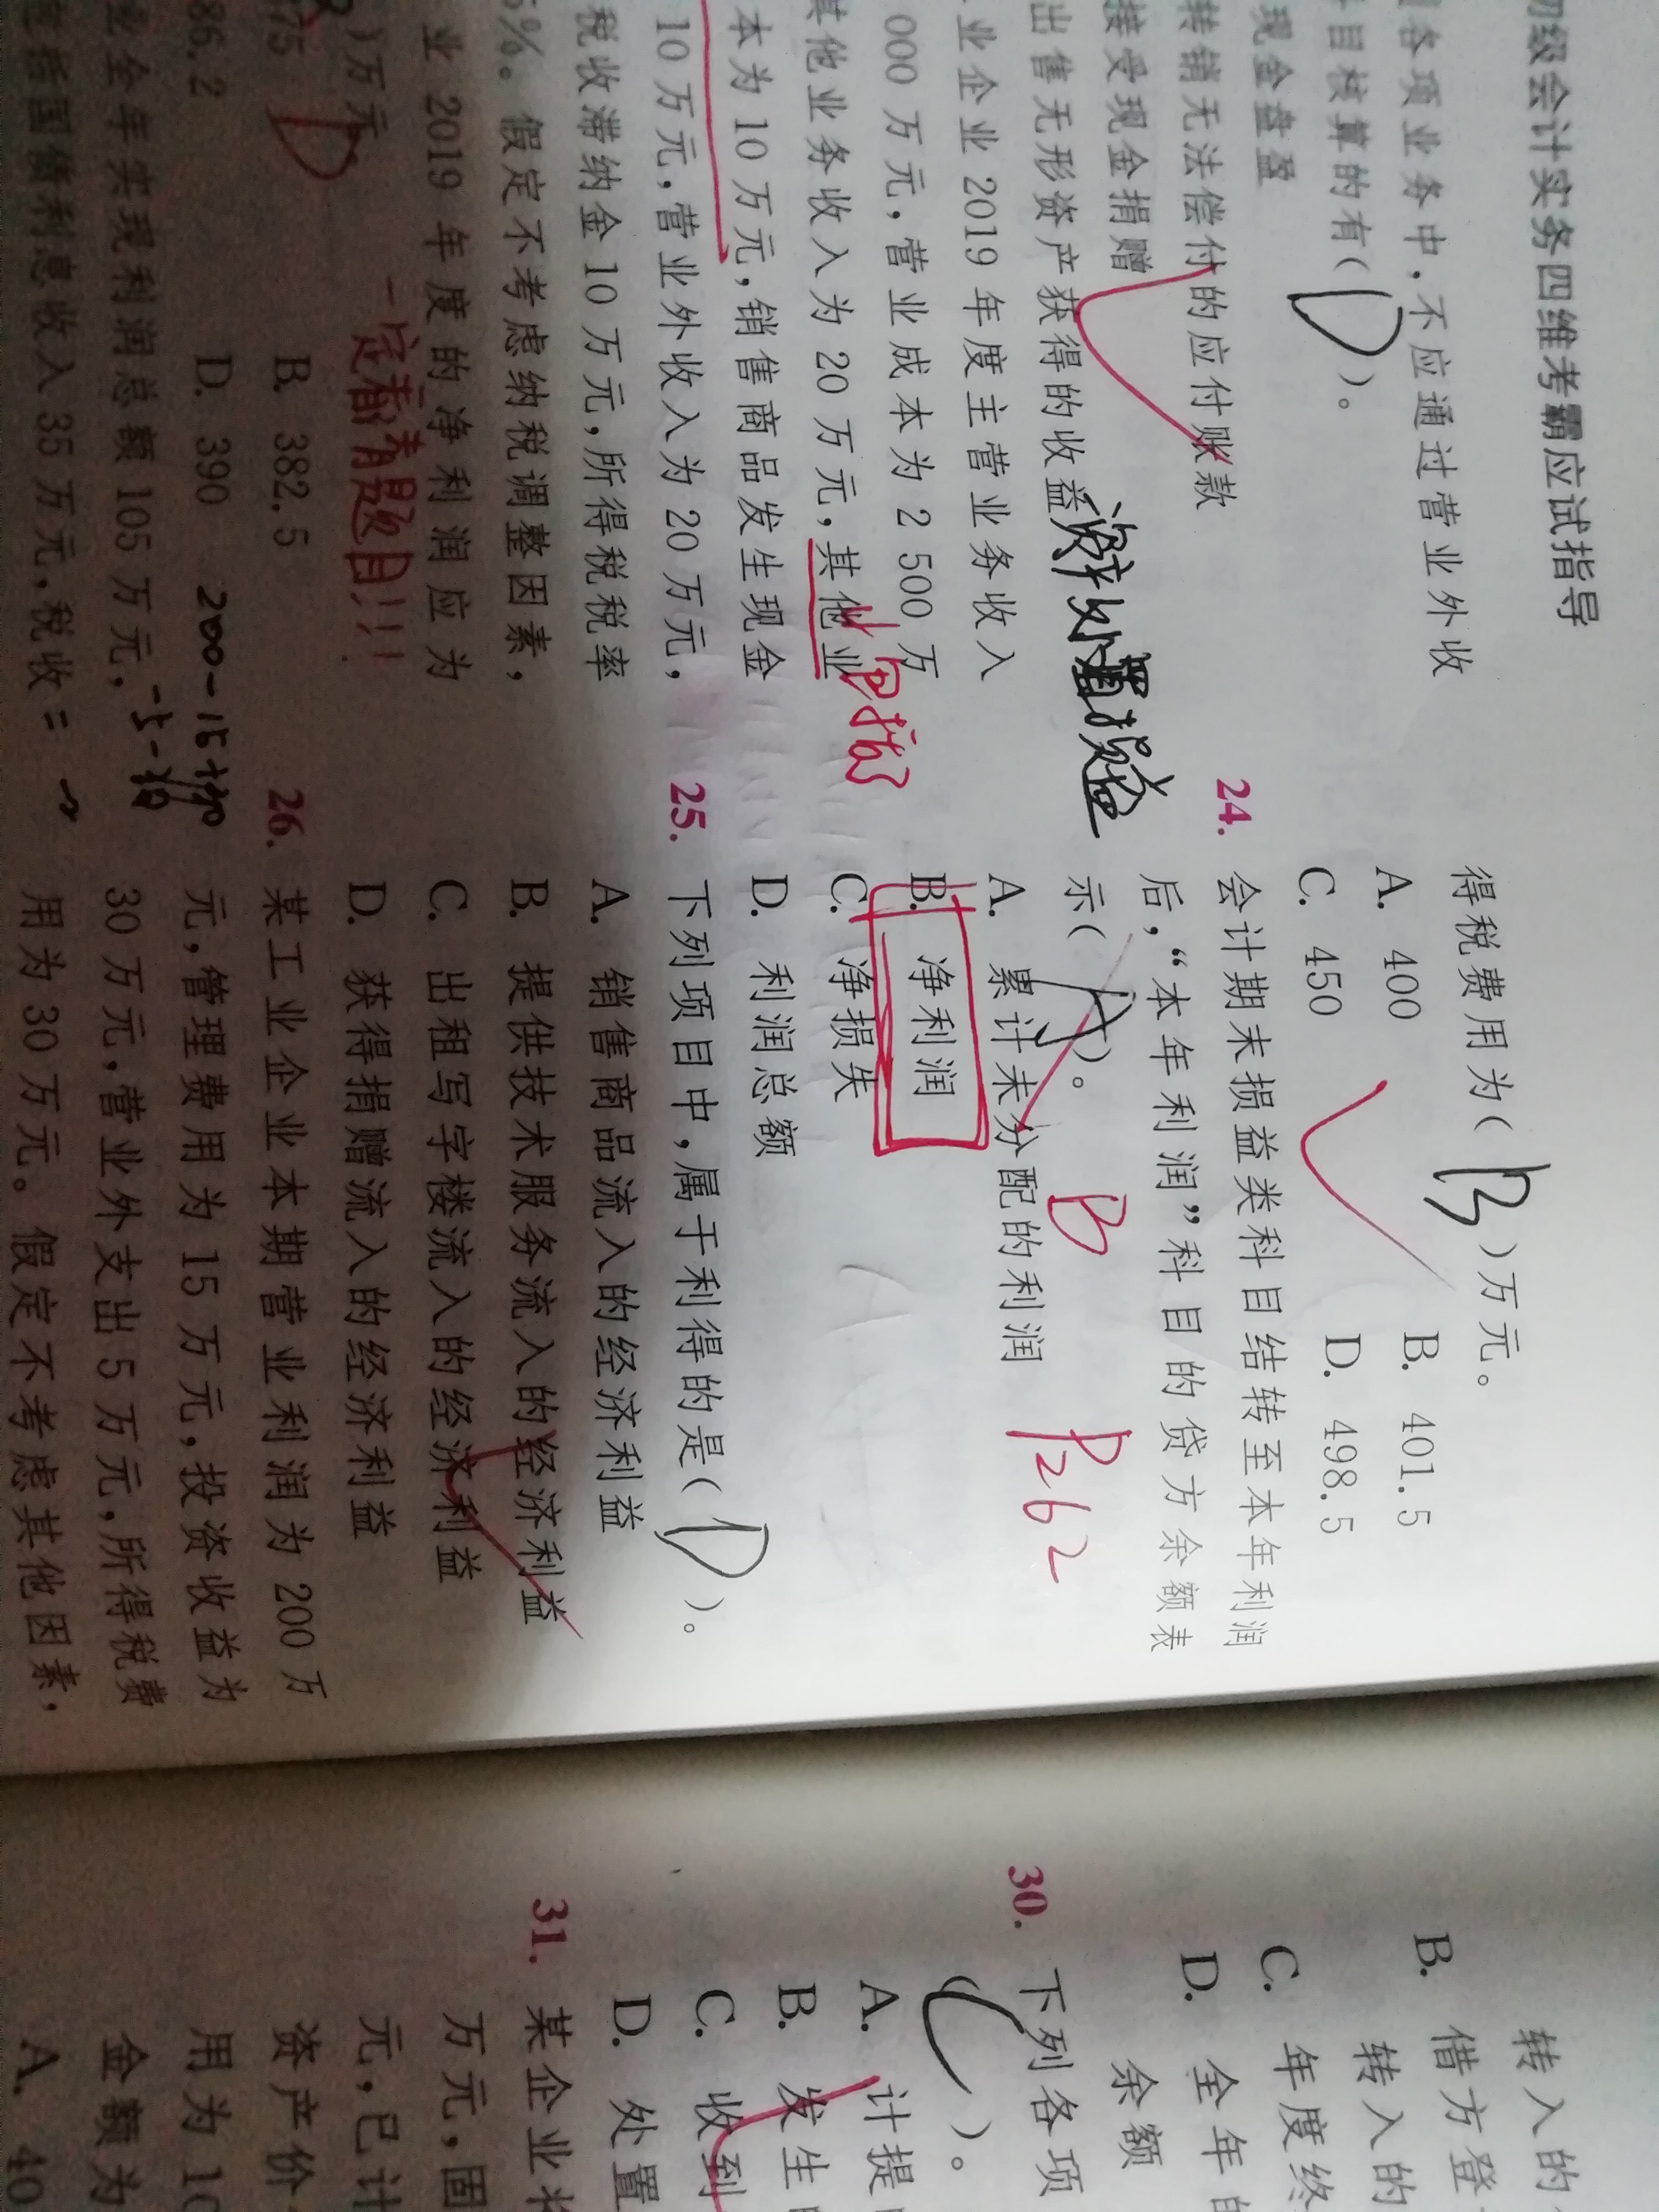 初级会计实务四维考霸应试指导
各项业务中,不应通过营业外收
目核算的有(D)。
现金盘盈
转销无法偿付的应付账款
接受现金捐赠
出售无形资产获得的收益 资产处置损益
业企业 2019 年度主营业务收入
000 万元,营业成本为 2 500 万
其他业务收入为 20 万元,其他业
本为 10 万元,销售商品发生现金
10 万元,营业外收入为 20 万元,
税收滞纳金 10 万元,所得税税率
5%。假定不考虑纳税调整因素,
业 2019 年度的净利润应为
)万元
一定看清题目!!!
75 D
B. 382.5
86.2
D. 390
业全年实现利润总额 105 万元,
包括国债利息收入 35 万元,税收
得税费用为(B)万元。
A. 400
B. 401.5
C. 450
D. 498.5
24. 会计期末损益类科目结转至本年利润
后,“本年利润”科目的贷方余额表
示(A)。 B P262
A. 累计未分配的利润
B. 净利润
C. 净损失
D. 利润总额
25. 下列项目中,属于利得的是(D)。
A. 销售商品流入的经济利益
B. 提供技术服务流入的经济利益
C. 出租写字楼流入的经济利益
D. 获得捐赠流入的经济利益
26. 某工业企业本期营业利润为 200 万
元,管理费用为 15 万元,投资收益为
30 万元,营业外支出 5 万元,所得税费
用为 30 万元。假定不考虑其他因素,
转入的
B. 借方登
转入的
C. 年度终
D. 全年的
余额
30. 下列各项
(C)。
A. 计提
B. 发生
C. 收到
D. 处置
31. 某企业
万元,固
元,已计
资产价
用为 10
金额为
A. 40